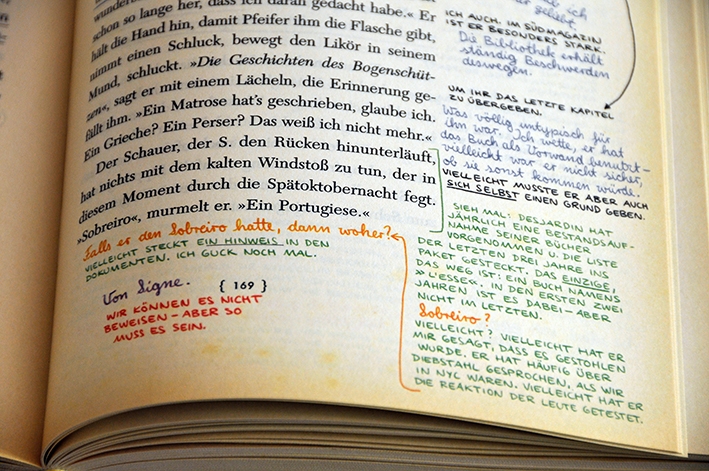 schon so lange her, dass ich daran gedacht habe.« Er
hält die Hand hin, damit Pfeifer ihm die Flasche gibt,
nimmt einen Schluck, bewegt den Likör in seinem
Mund, schluckt. »Die Geschichten des Bogenschüt-
zen«, sagt er mit einem Lächeln, die Erinnerung ge-
fällt ihm. »Ein Matrose hat's geschrieben, glaube ich.
Ein Grieche? Ein Perser? Das weiß ich nicht mehr.«
Der Schauer, der S. den Rücken hinunterläuft,
hat nichts mit dem kalten Windstoß zu tun, der in
diesem Moment durch die Spätoktobernacht fegt.
»Sobreiro«, murmelt er. »Ein Portugiese.«
Falls er den Sobreiro hatte, dann woher?
VIELLEICHT STECKT EIN HINWEIS IN DEN
DOKUMENTEN. ICH GUCK NOCH MAL.
Von Signe.
{ 169 }
WIR KÖNNEN ES NICHT
BEWEISEN – ABER SO
MUSS ES SEIN.
ICH AUCH. IM SÜDMAGAZIN
IST ER BESONDERS STARK.
Die Bibliothek erhält
ständig Beschwerden
deswegen.
UM IHR DAS LETZTE KAPITEL
ZU ÜBERGEBEN.
Was völlig untypisch für
ihn war. Ich wette, er hat
das Buch als Vorwand benutzt –
vielleicht war er nicht sicher,
ob sie sonst kommen würde.
VIELLEICHT MUSSTE ER ABER AUCH
SICH SELBST EINEN GRUND GEBEN.
SIEH MAL: DESJARDIN HAT
JÄHRLICH EINE BESTANDSAUF-
NAHME SEINER BÜCHER
VORGENOMMEN U. DIE LISTE
DER LETZTEN DREI JAHRE INS
PAKET GESTECKT. DAS EINZIGE,
DAS WEG IST: EIN BUCH NAMENS
»L'ESSE«. IN DEN ERSTEN ZWEI
JAHREN IST ES DABEI – ABER
NICHT IM LETZTEN.
Sobreiro?
VIELLEICHT? VIELLEICHT HAT ER
MIR GESAGT, DASS ES GESTOHLEN
WURDE. ER HAT HÄUFIG ÜBER
DIEBSTAHL GESPROCHEN, ALS WIR
IN NYC WAREN. VIELLEICHT HAT ER
DIE REAKTION DER LEUTE GETESTET.